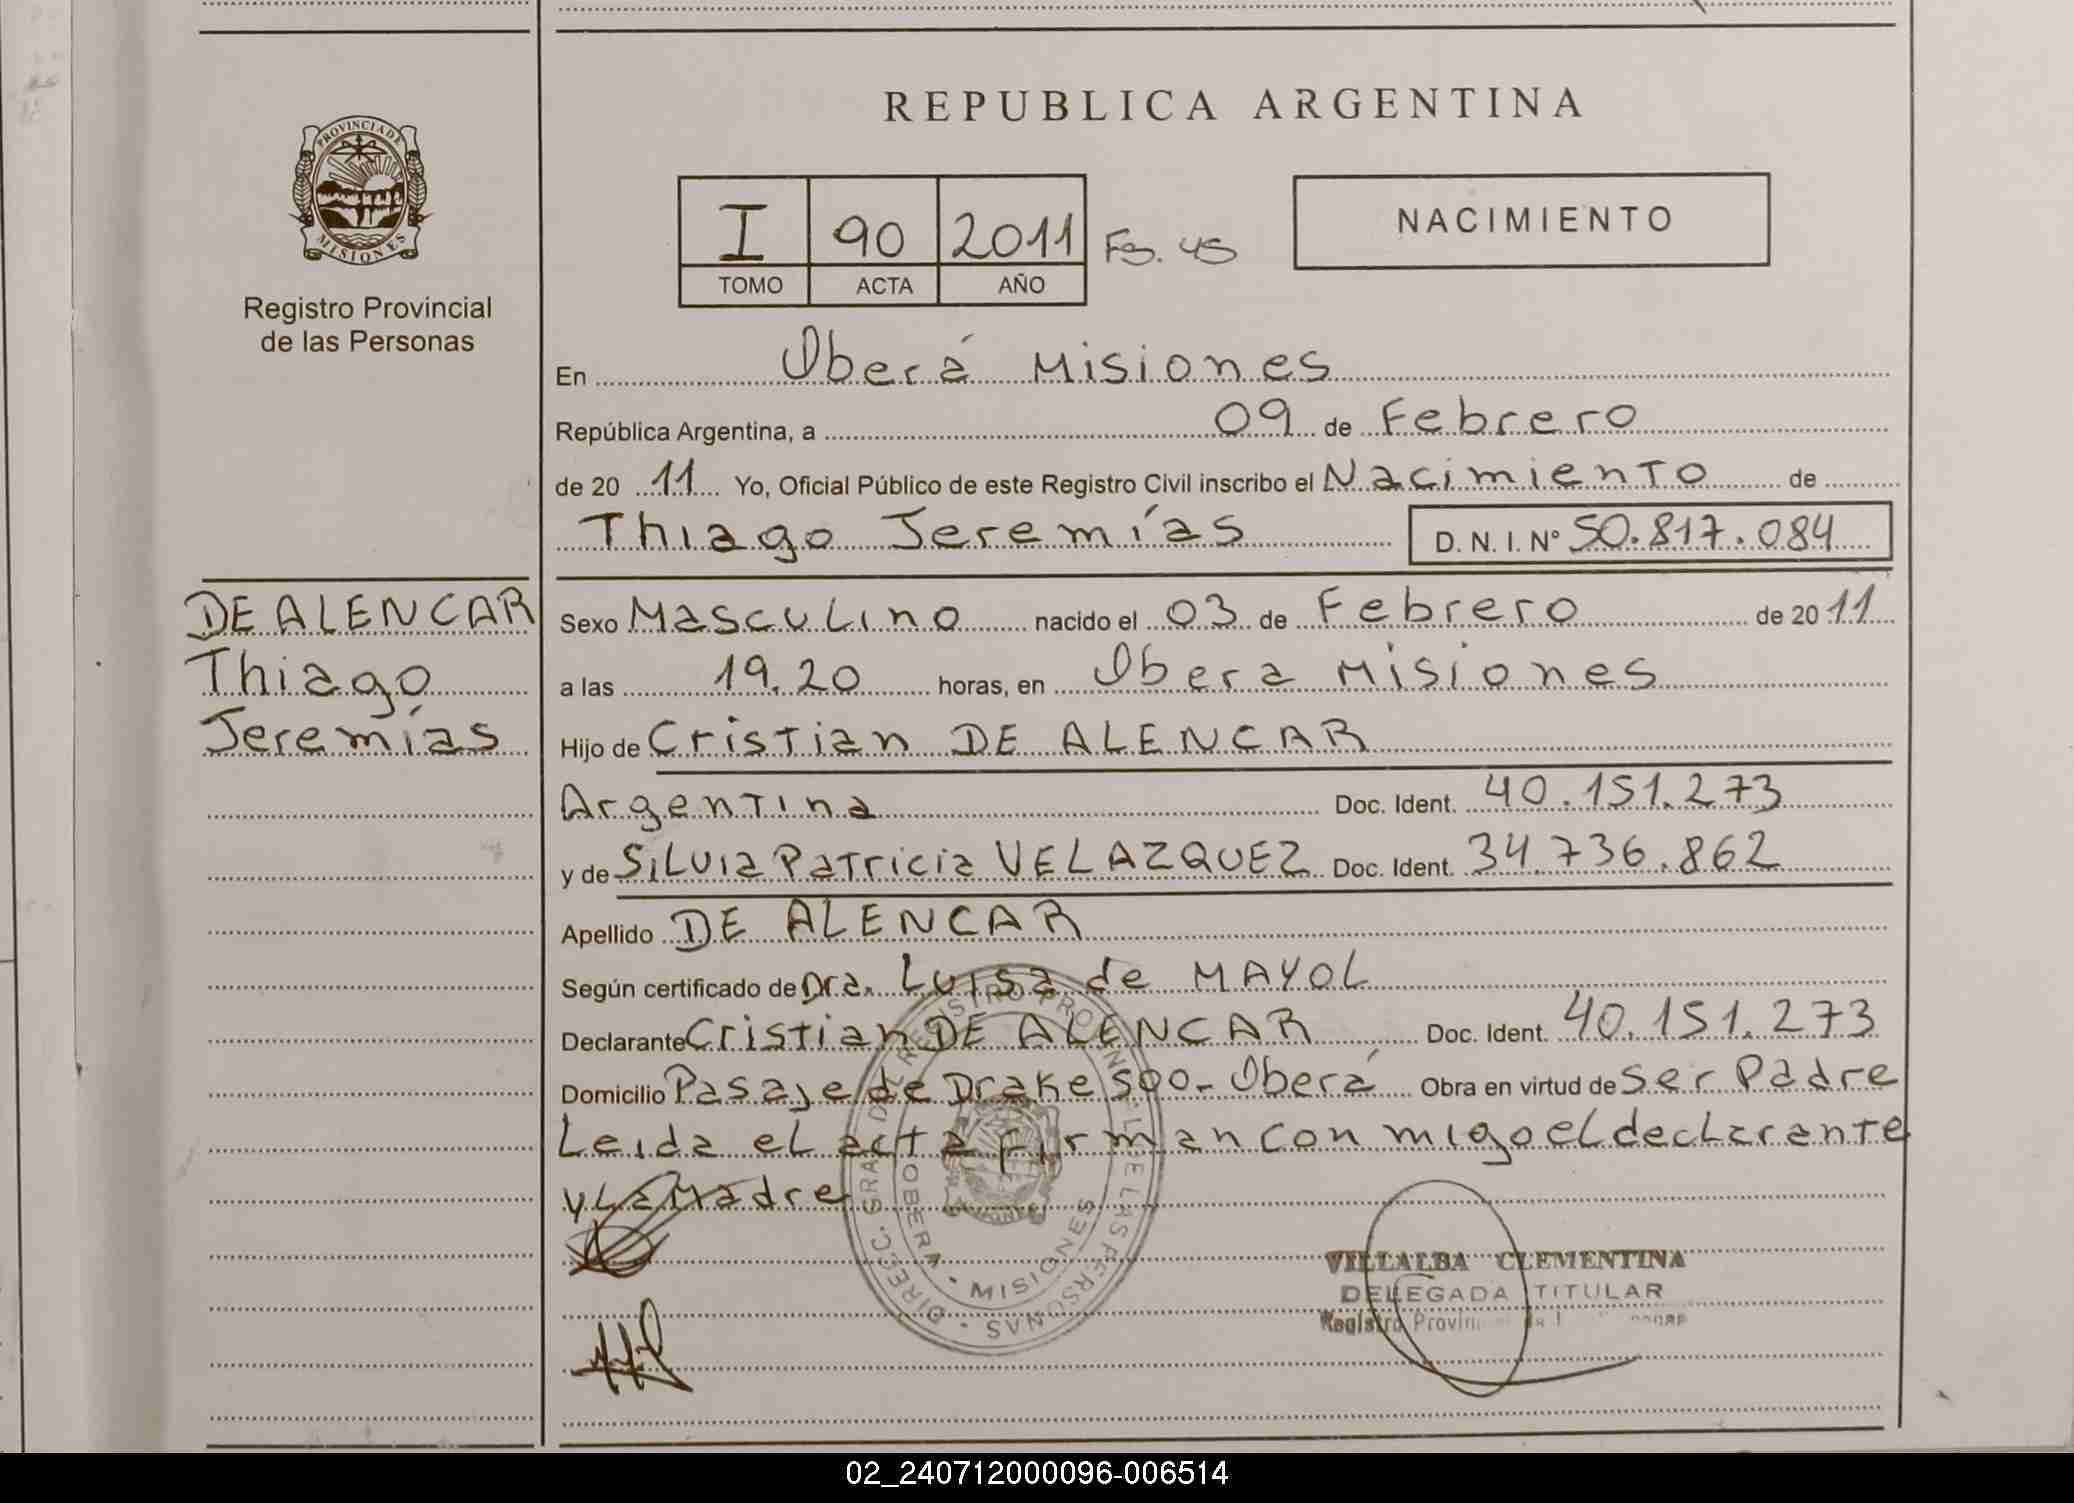 REPUBLICA ARGENTINA
PROVINCIA DE
MISIONES
Registro Provincial
de las Personas
I 90 2011 Fs. 45
TOMO ACTA AÑO
NACIMIENTO
En Oberá Misiones
República Argentina, a 09 de Febrero
de 20 11 Yo, Oficial Público de este Registro Civil inscribo el Nacimiento de
Thiago Jeremías D. N. I. Nº 50.817.084
DE ALENCAR
Thiago
Jeremías
Sexo Masculino nacido el 03 de Febrero de 20 11
a las 19.20 horas, en Obera Misiones
Hijo de Cristian DE ALENCAR
Argentina Doc. Ident. 40.151.273
y de Silvia Patricia VELAZQUEZ Doc. Ident. 34.736.862
Apellido DE ALENCAR
Según certificado de Dra. Luisa de MAYOL
Declarante Cristian DE ALENCAR Doc. Ident. 40.151.273
Domicilio Pasaje de Drake 500- Oberá Obra en virtud de Ser Padre
Leida el acta firman con migo el declarante
y La Madre
DIRECC. GRAL. DEL REGISTRO PROVINCIAL DE LAS PERSONAS
OBERA • MISIONES
VILLALBA CLEMENTINA
DELEGADA TITULAR
Registro
02_240712000096-006514